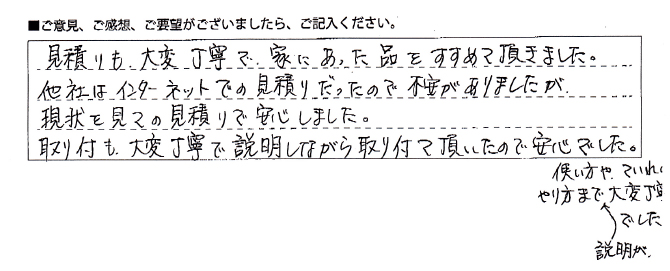 ■ご意見、ご感想、ご要望がございましたら、ご記入ください。
見積りも、大変丁寧で、家にあった品をすすめて頂きました。
他社はインターネットでの見積りだったので不安がありましたが、
現状を見ての見積りで安心しました。
取り付も、大変丁寧で説明しながら取り付て頂いたので安心でした。
使い方や、ていれの
やり方まで大変丁寧
でした
説明が、